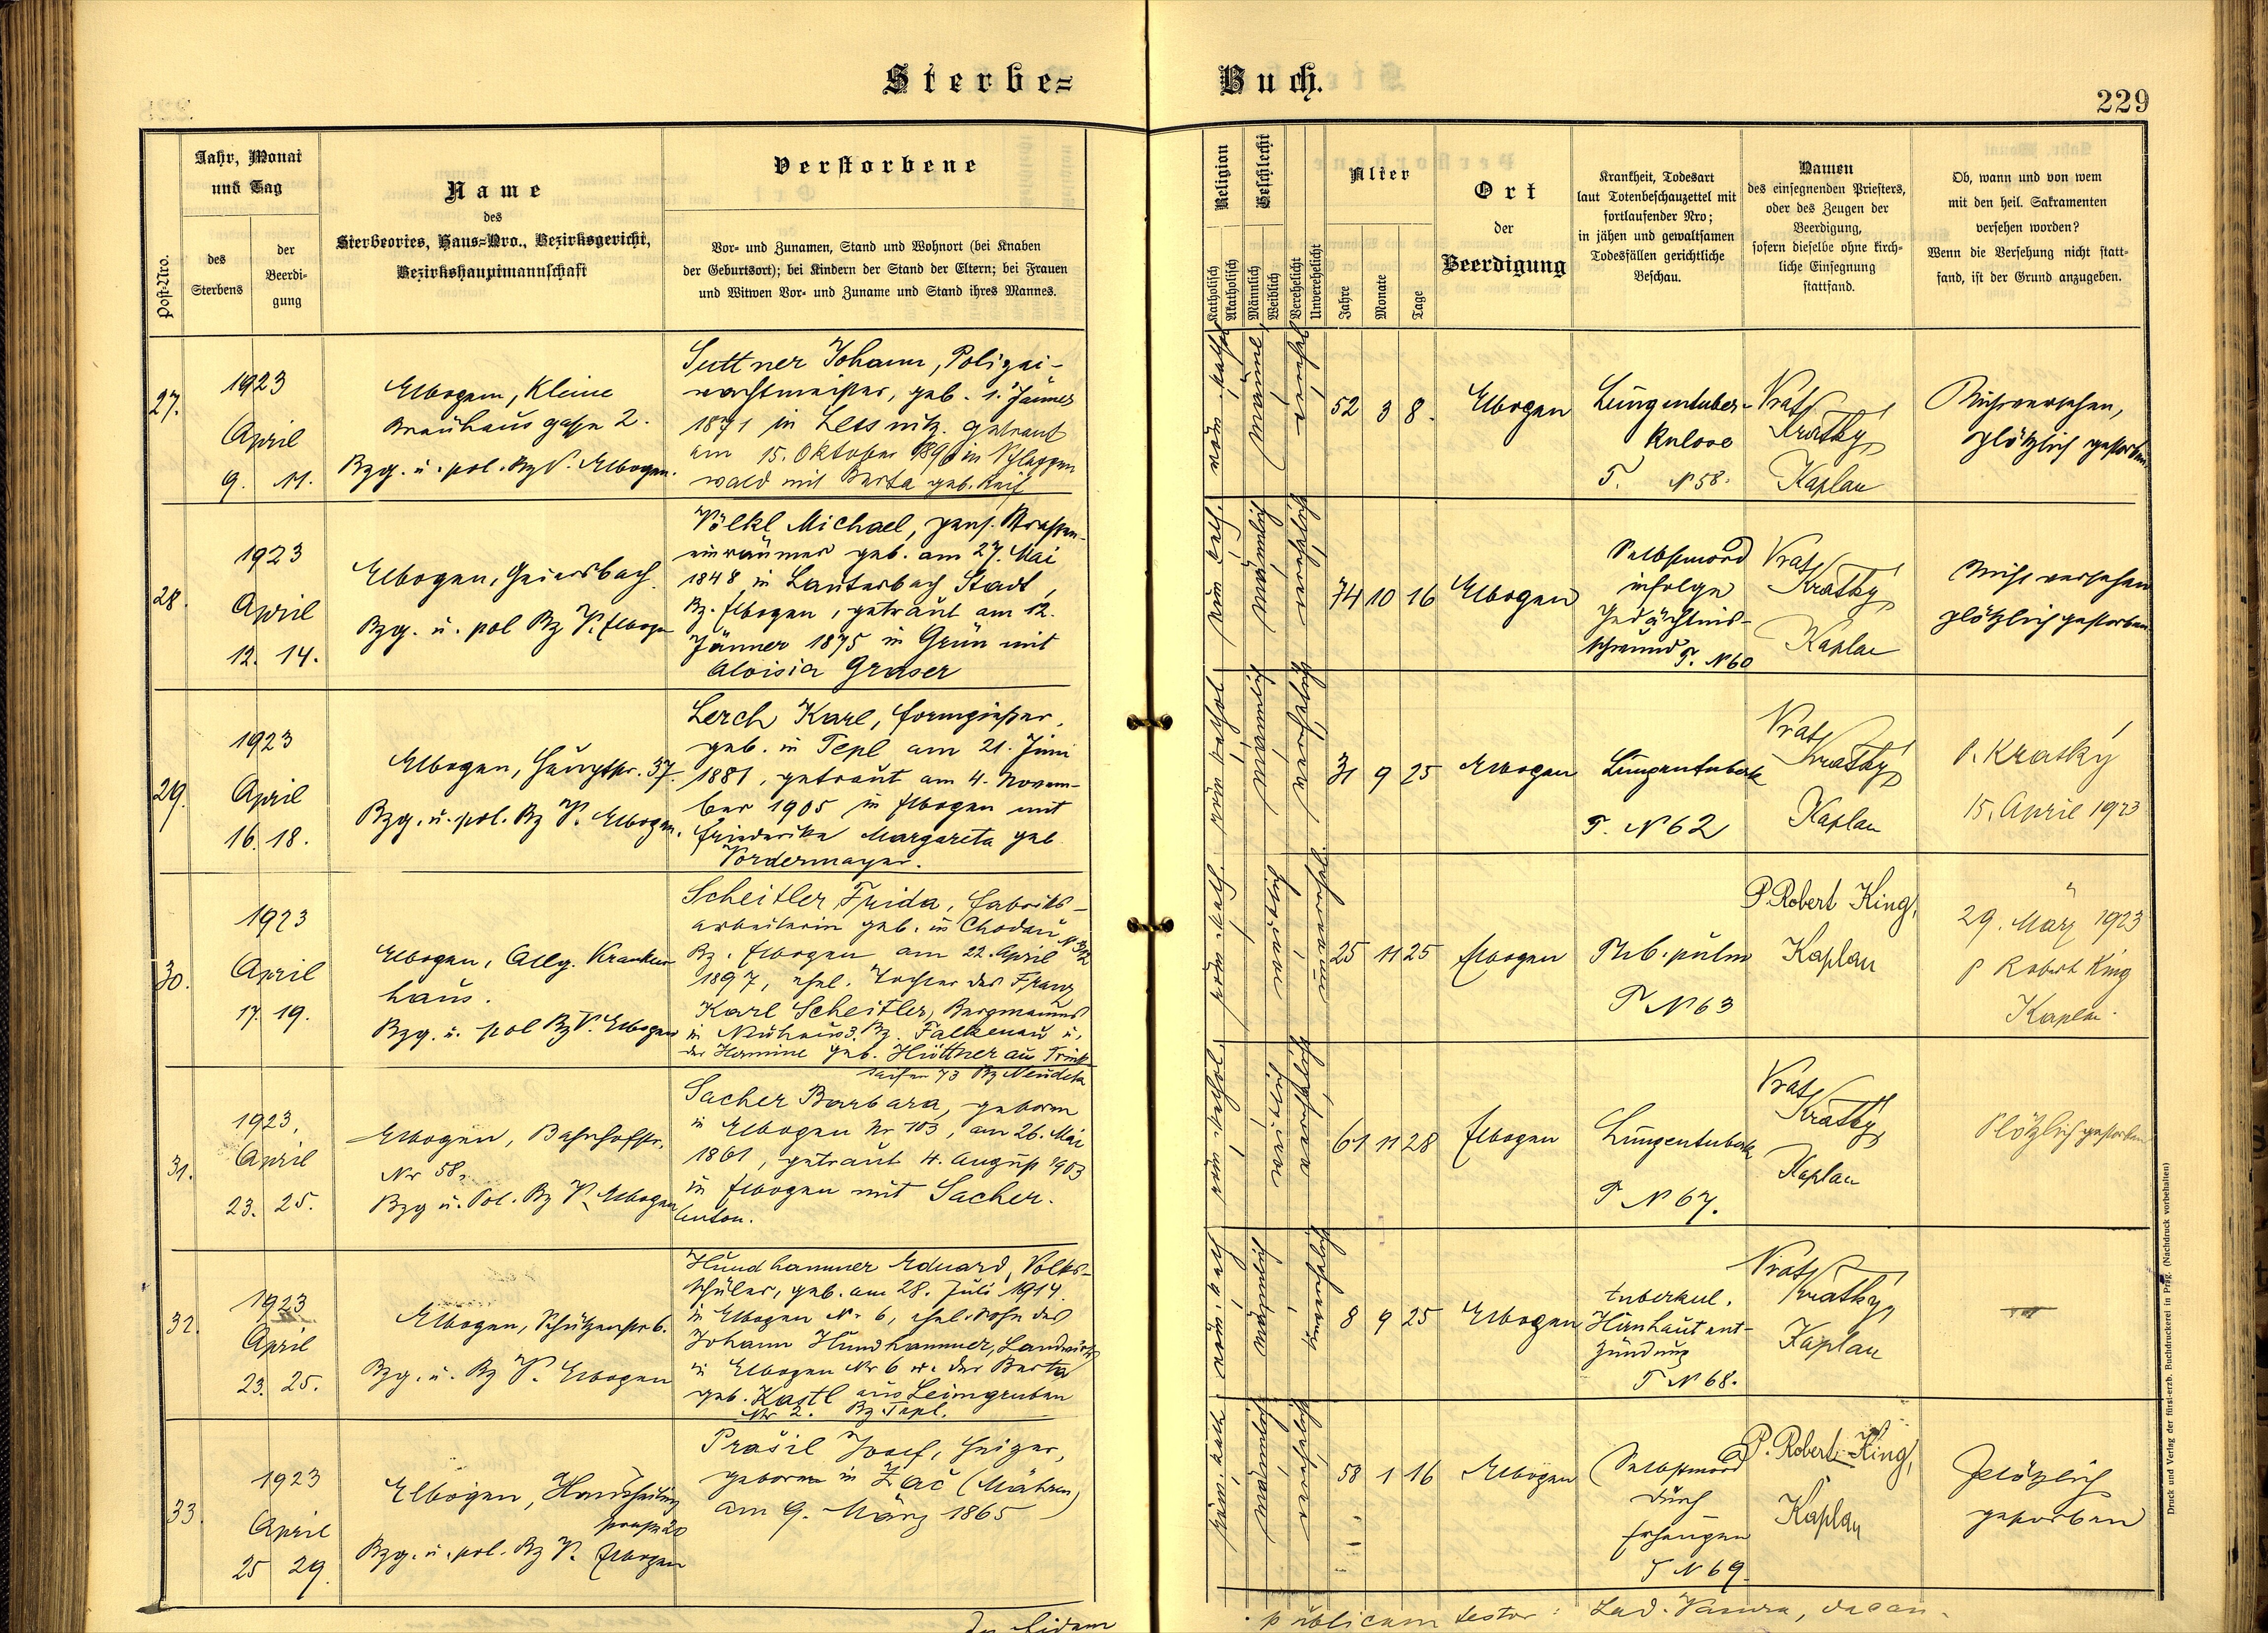 Sterbe=
Buch.
229
Post-Nro.
Jahr, Monat
und Tag
des
Sterbens
der
Beerdi-
gung
Name
des
Sterbeortes, Haus=Nro., Bezirksgericht,
Bezirkshauptmannschaft
Verstorbene
Vor- und Zunamen, Stand und Wohnort (bei Knaben
der Geburtsort); bei Kindern der Stand der Eltern; bei Frauen
und Witwen Vor- und Zuname und Stand ihres Mannes.
Religion
Katholisch
Akatholisch
Geschlecht
Männlich
Weiblich
Verehelicht
Unverehelicht
Alter
Jahre
Monate
Tage
Ort
der
Beerdigung
Krankheit, Todesart
laut Totenbeschauzettel mit
fortlaufender Nro;
in jähen und gewaltsamen
Todesfällen gerichtliche
Beschau.
Namen
des einsegnenden Priesters,
oder des Zeugen der
Beerdigung,
sofern dieselbe ohne kirch-
liche Einsegnung
stattfand.
Ob, wann und von wem
mit den heil. Sakramenten
versehen worden?
Wenn die Versehung nicht statt-
fand, ist der Grund anzugeben.
27.
1923
April
9. 11.
Elbogen, Kleine
Brauhausgasse 2.
Bzg. u. pol. Bz V. Elbogen.
Suttner Johann, Polizei-
wachtmeister, geb. 1. Jänner
1871 in Lessnitz. getraut
am 15. Oktober 1896 in Schlaggen
wald mit Berta geb.
röm. kathol
männl.
verehel
52 3 8.
Elbogen
Lungentuber-
kulose
T. N 58.
Vrat.
Kratký
Kaplan
Nicht versehen,
plötzlich gestorben.
28.
1923
April
12. 14.
Elbogen, Geiersbach
Bzg. u. pol Bz V. Elbogen
Völkl Michael, pens. Strassen-
einräumer geb. am 27. Mai
1848 in Lauterbach Stadt,
Bz. Elbogen, getraut am 12.
Jänner 1875 in Grün mit
Aloisia Graser
röm. kath.
männlich
verehelicht
74 10 16
Elbogen
Selbstmord
infolge
Gedächtnis-
schwund T. N 60
Vrat.
Kratký
Kaplan
Nicht versehen
plötzlich gestorben.
29.
1923
April
16. 18.
Elbogen, Hauptstr. 37.
Bzg. u. pol. Bz V. Elbogen.
Lerch Karl, Formgießer,
geb. in Tepl am 21. Juni
1881, getraut am 4. Novem-
ber 1905 in Elbogen mit
Friederika Margareta geb
Vordermayer.
röm. kathol.
männlich
verehelicht
31 9 25
Elbogen
Lungentuberk
T. N 62
Vrat.
Kratký
Kaplan
P. Kratký
15. April 1923
30.
1923
April
17. 19.
Elbogen, Allg. Kranken
haus.
Bzg. u. pol Bz V. Elbogen
Scheitler Frida, Fabriks-
arbeiterin geb. in Chodau N 312
Bz. Elbogen am 22. April
1897, ehel. Tochter des Franz
Karl Scheitler, Bergmannes
in Neuhaus 3. Bz. Falkenau u.
der Hermine geb. Hüttner aus Trink
saifen 73 Bz Neudek
röm. kath.
weiblich
unverehel.
25 11 25
Elbogen
Tub. pulm
T N 63
P. Robert King,
Kaplan
29. März 1923
P Robert King
Kaplan.
31.
1923.
April
23. 25.
Elbogen, Bahnhofstr.
Nr 58.
Bzg u. Pol. Bz V. Elbogen
Sacher Barbara, geboren
in Elbogen Nr 103, am 26. Mai
1861, getraut 4. August 1903
in Elbogen mit Sacher.
Anton.
röm. kathol.
weiblich
verehelicht
61 11 28
Elbogen
Lungentuberk
T N 67.
Vrat.
Kratký
Kaplan
Plötzlich gestorben
32.
1923
April
23. 25.
Elbogen, Schützenstr 6.
Bzg. u. Bz V. Elbogen
Hundhammer Eduard, Volks-
schüler, geb. am 28. Juli 1914
in Elbogen Nr 6, ehel. Sohn des
Johann Hundhammer, Landwirts
in Elbogen Nr 6 u. der Berta
geb. Kastl aus Leimgruben
Nr 2. Bz Tepl.
röm. kath
männlich
Unverehelicht
8 9 25
Elbogen
tuberkul.
Hirnhautent-
zündung
T N 68.
Vrat.
Kratký,
Kaplan
33.
1923
April
25 29.
Elbogen,
20
Bzg. u. pol. Bz V. Elbogen
Prašil Josef, Heizer,
geboren in Žač (Mähren)
am 9. März 1865
röm. kath
männlich
verehelicht
58 1 16
Elbogen
Selbstmord
durch
Erhängen
T N 69.
P. Robert King,
Kaplan
plötzlich
gestorben
In fidem
publicam testor: Lad. decan.
Druck und Verlag der fürst-erzb. Buchdruckerei in Prag. (Nachdruck vorbehalten)